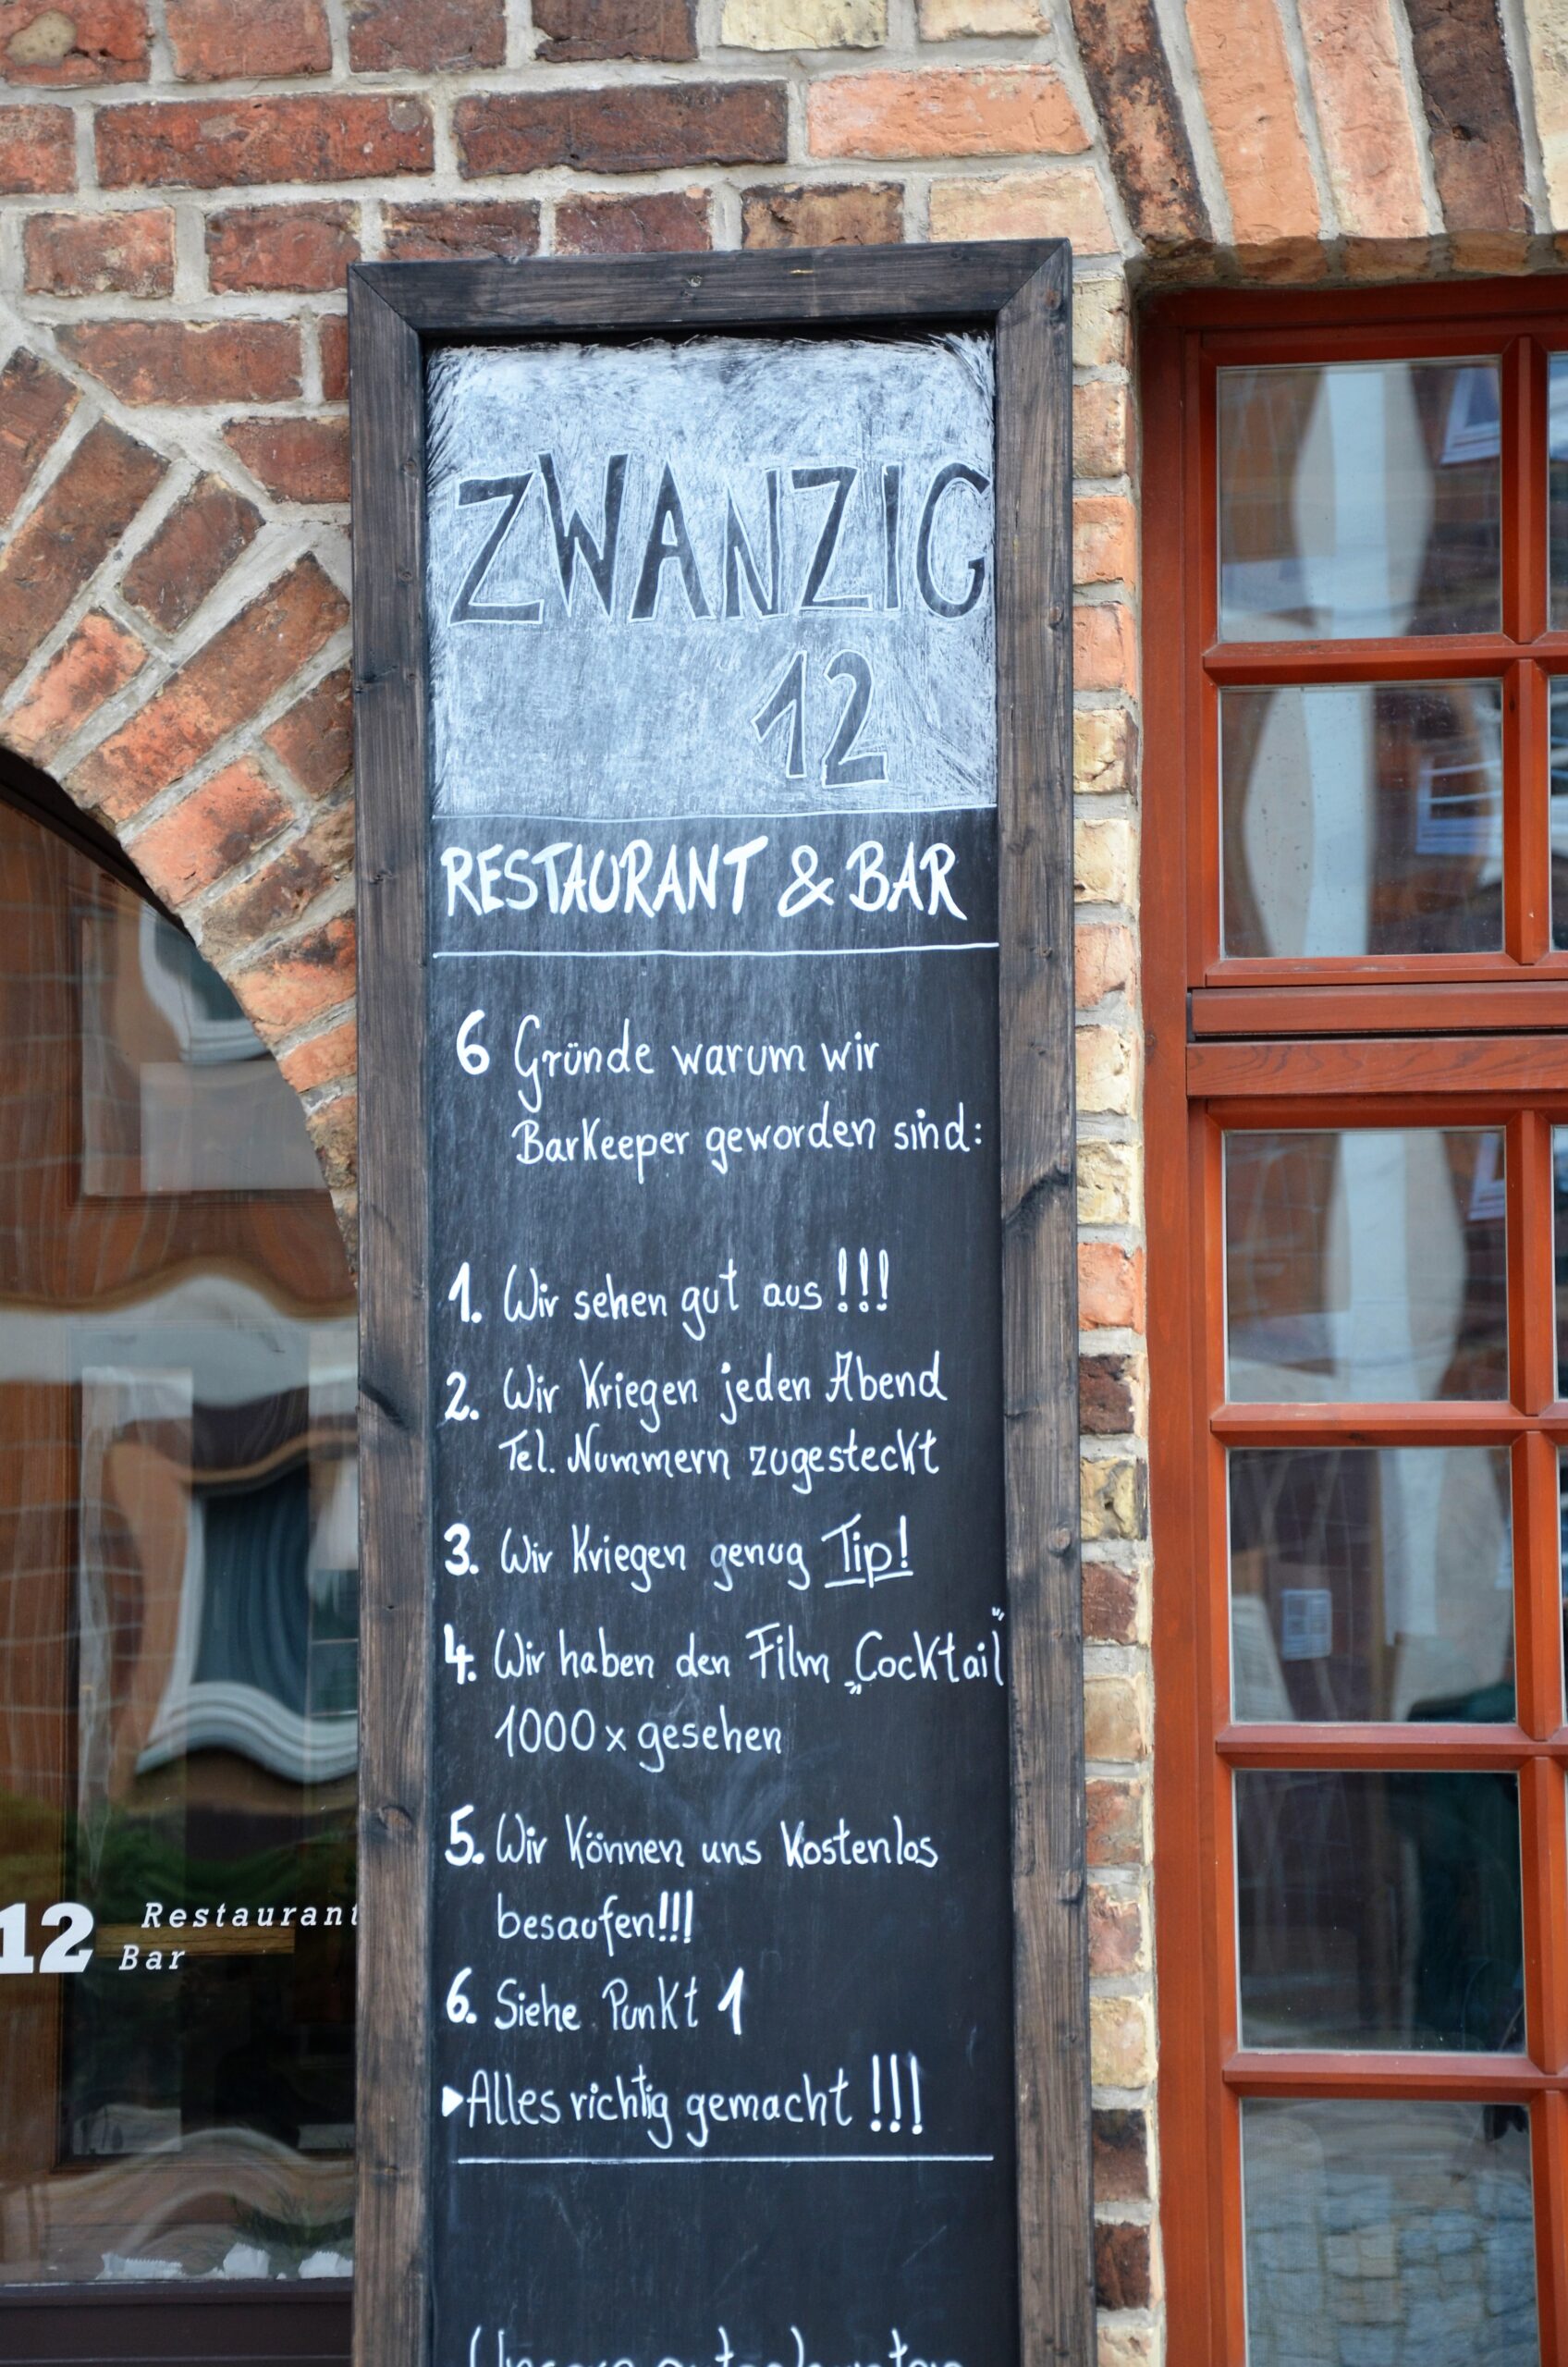 ZWANZIG
12
RESTAURANT & BAR
6 Gründe warum wir
Barkeeper geworden sind:
1. Wir sehen gut aus!!!
2. Wir Kriegen jeden Abend
Tel. Nummern zugesteckt
3. Wir Kriegen genug Tip!
4. Wir haben den Film „Cocktail"
1000x gesehen
5. Wir Können uns Kostenlos
besaufen!!!
6. Siehe Punkt 1
▸Alles richtig gemacht!!!
Unsere
12 Restaurant
Bar